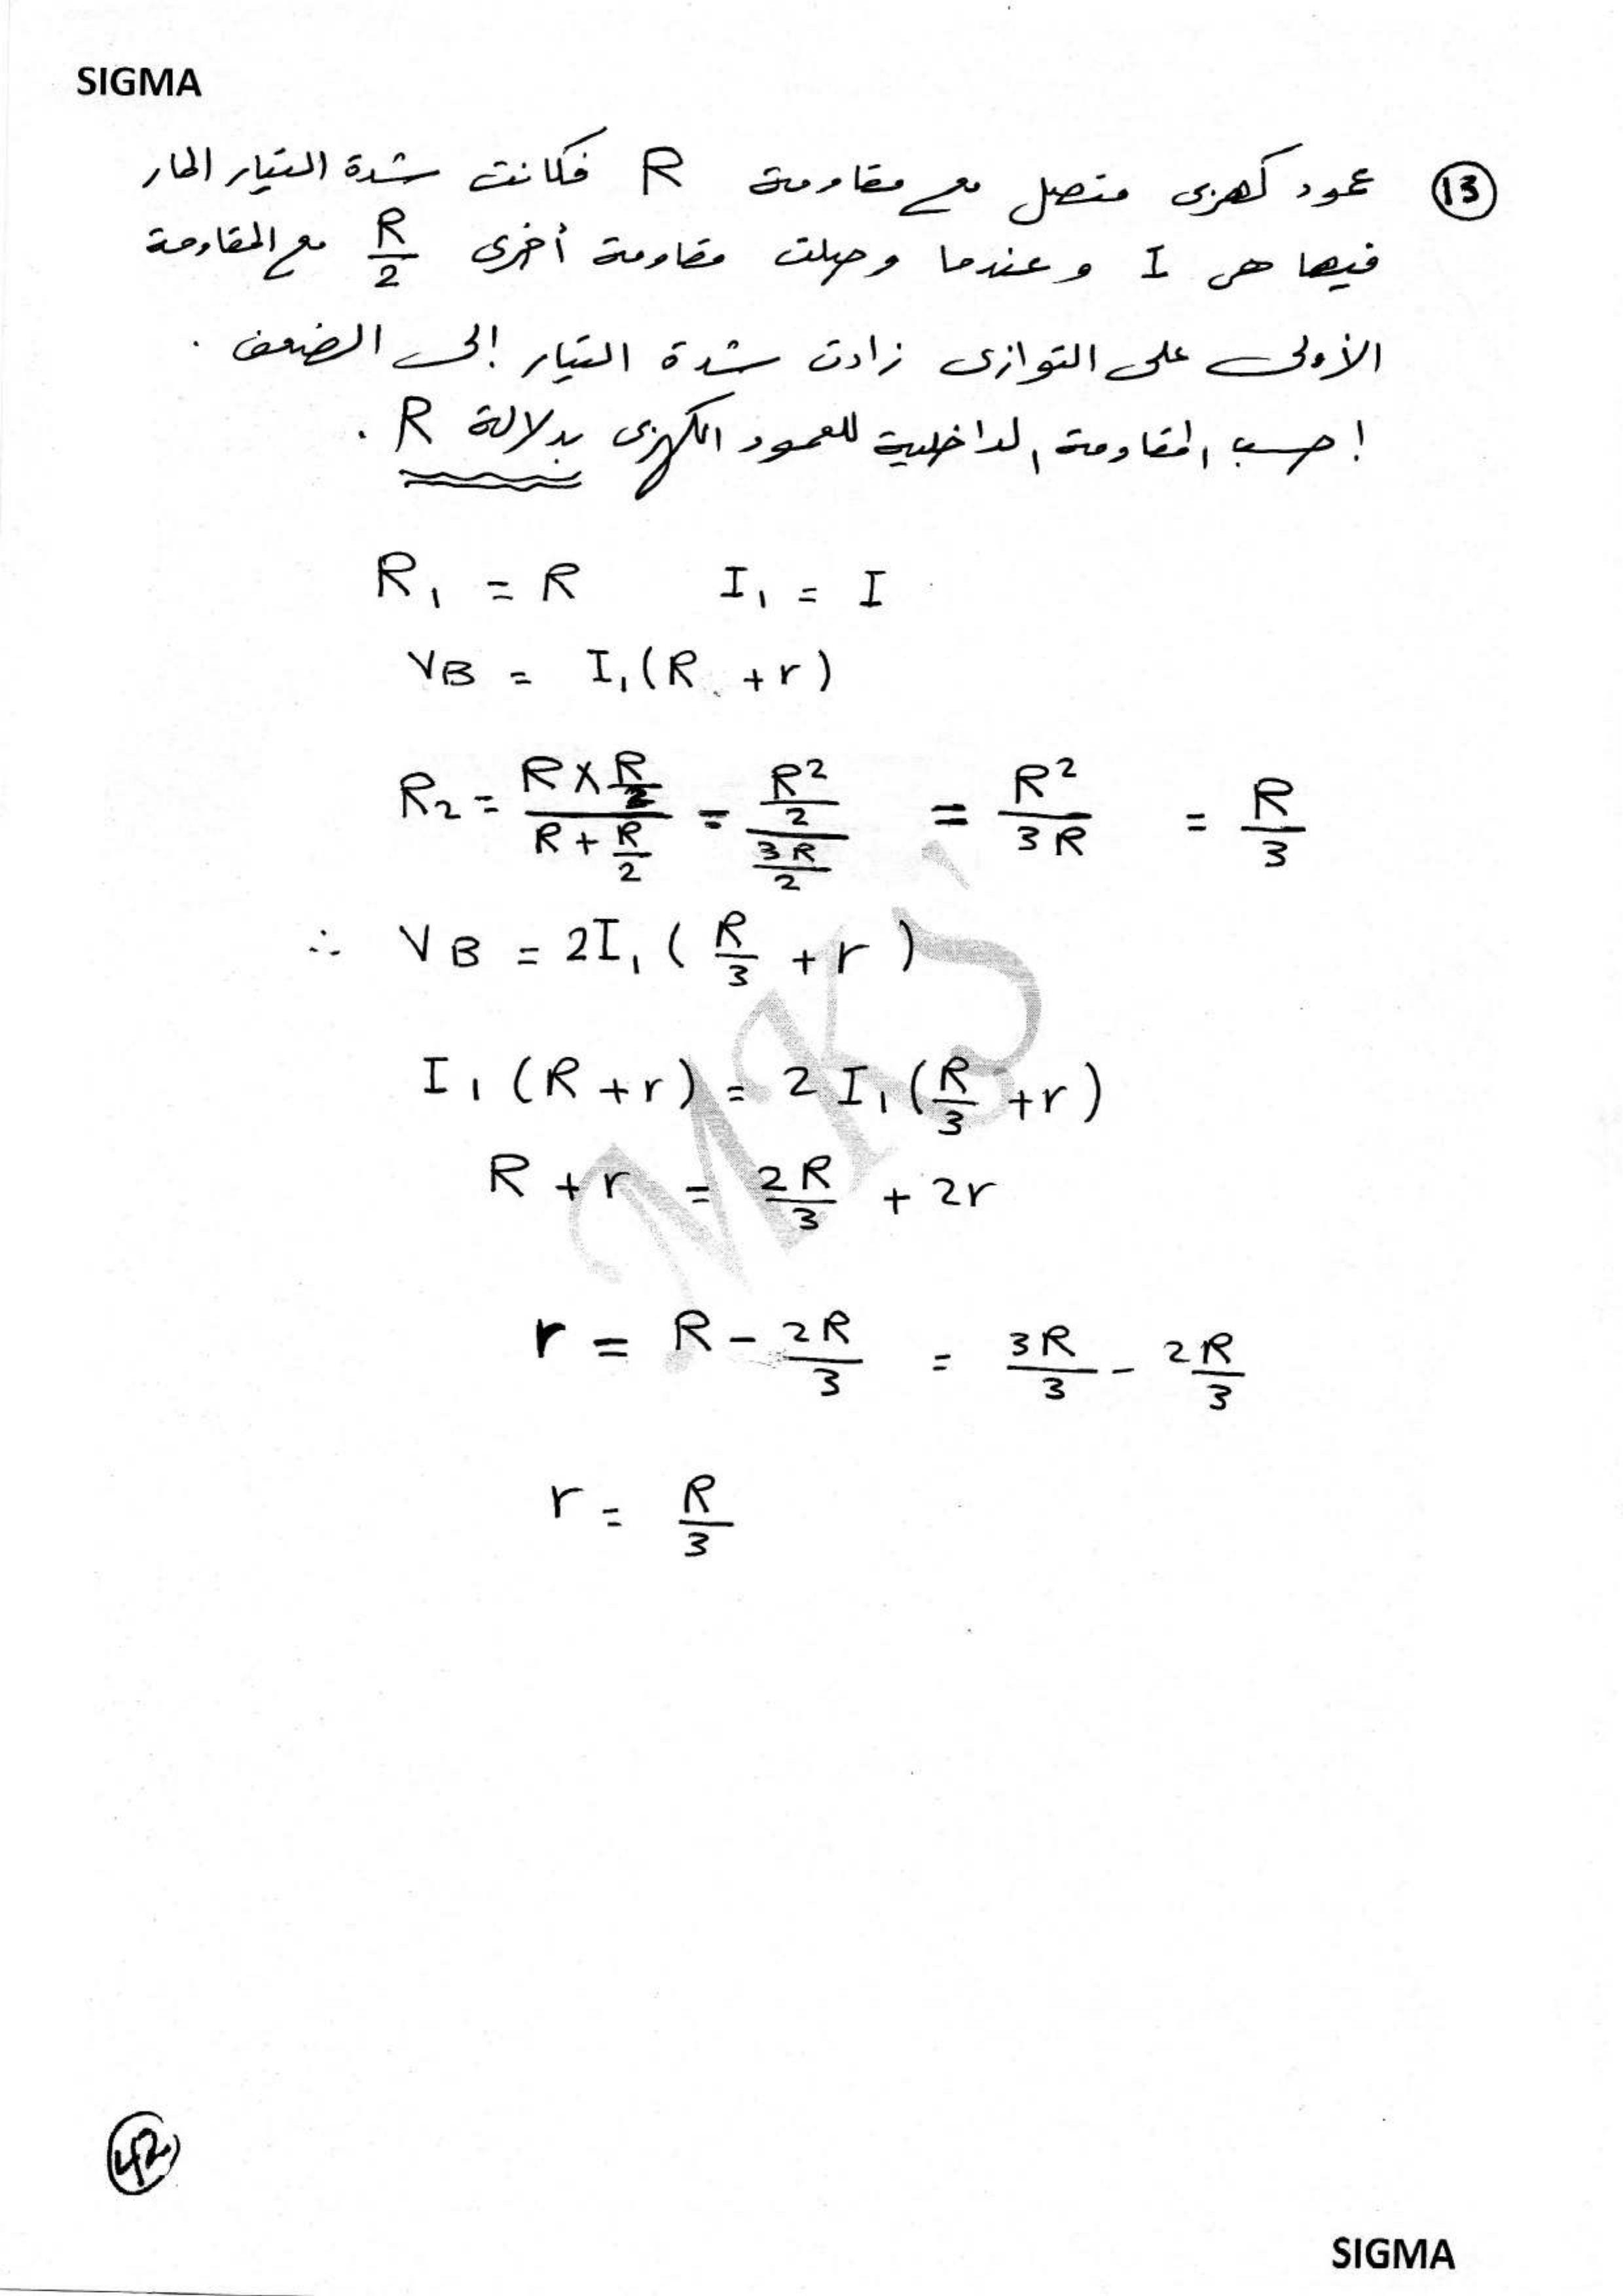 SIGMA
13 عمود كهربى متصل مع مقاومة R فكانت شدة التيار المار
فيها هى I وعندما وصلت مقاومة أخرى R/2 مع المقاومة
الأولى على التوازى زادت شدة التيار إلى الضعف .
إحسب المقاومة الداخلية للعمود الكهربى بدلالة R .
R₁ = R I₁ = I
VB = I₁(R + r)
R₂ = (R × R/2)/(R + R/2) = (R²/2)/(3R/2) = R²/3R = R/3
∴ VB = 2I₁ (R/3 + r)
I₁ (R + r) = 2 I₁ (R/3 + r)
R + r = 2R/3 + 2r
r = R - 2R/3 = 3R/3 - 2R/3
r = R/3
MKS
42
SIGMA